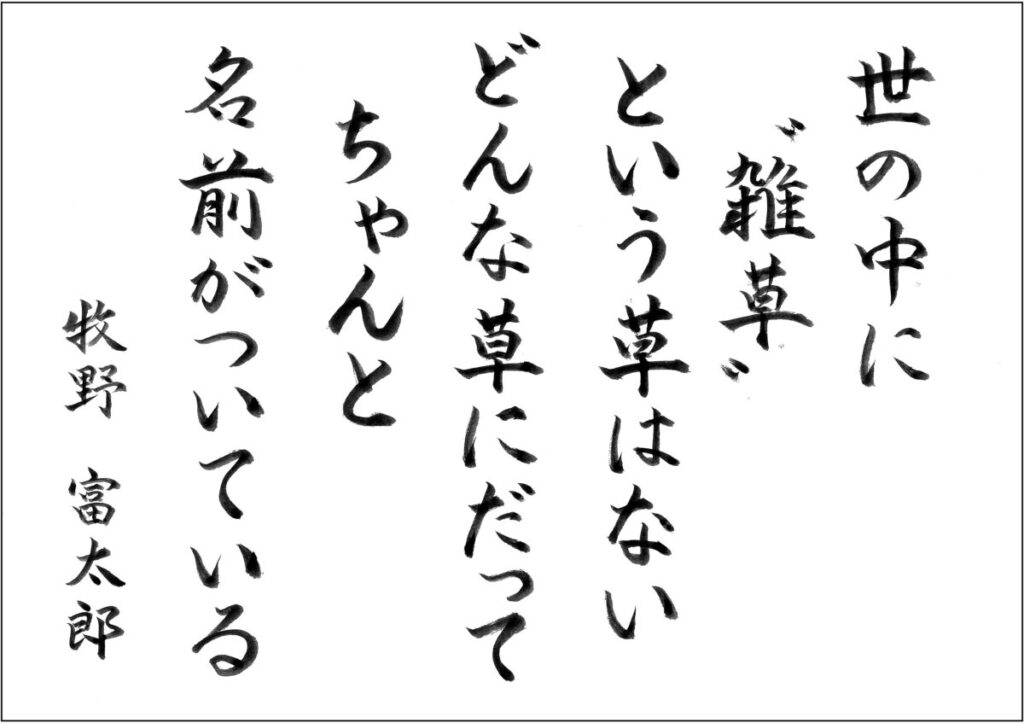 世の中に
〝雑草〟
という草はない
どんな草にだって
ちゃんと
名前がついている
牧野 富太郎